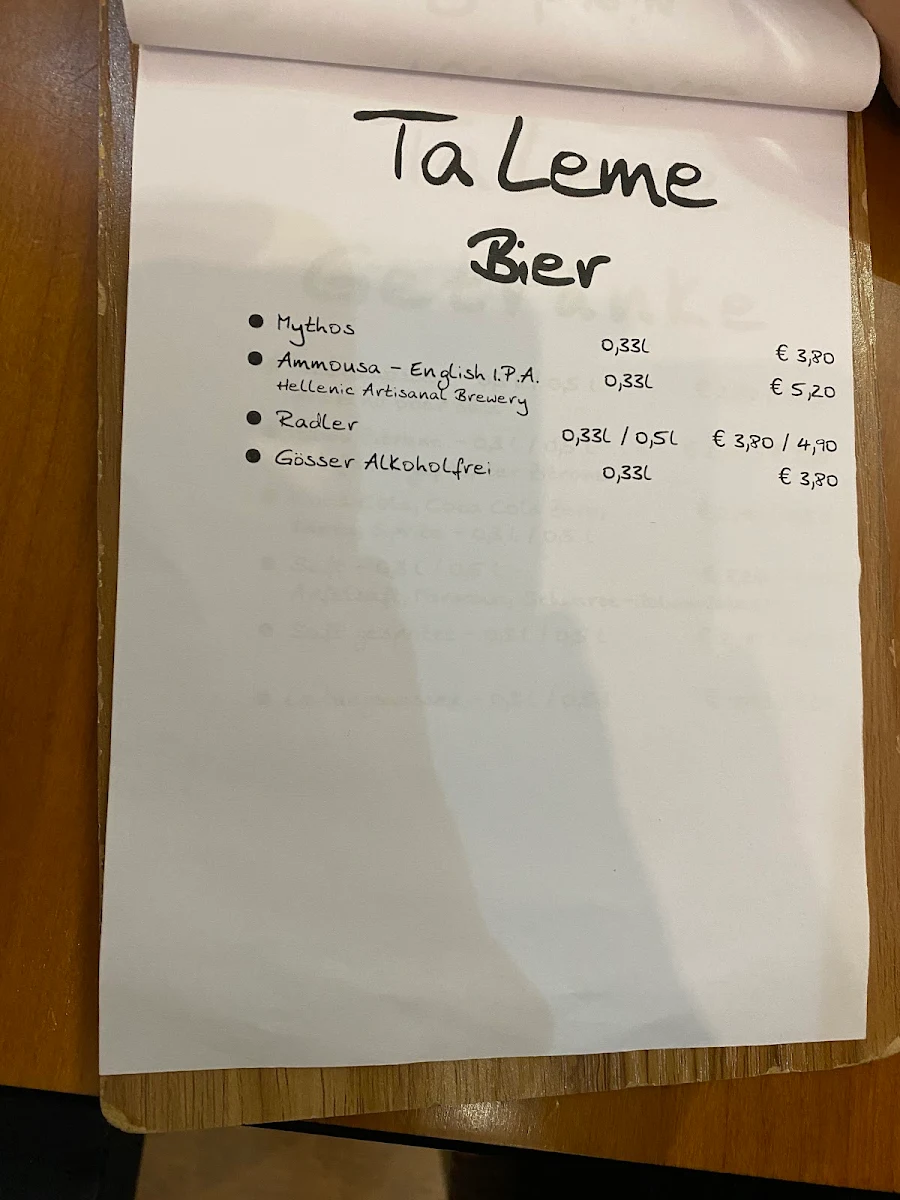 Ta Leme
Bier
● Mythos 0,33L € 3,80
● Ammousa – English I.P.A. 0,33L € 5,20
Hellenic Artisanal Brewery
● Radler 0,33L / 0,5L € 3,80 / 4,90
● Gösser Alkoholfrei 0,33L € 3,80
Getränke